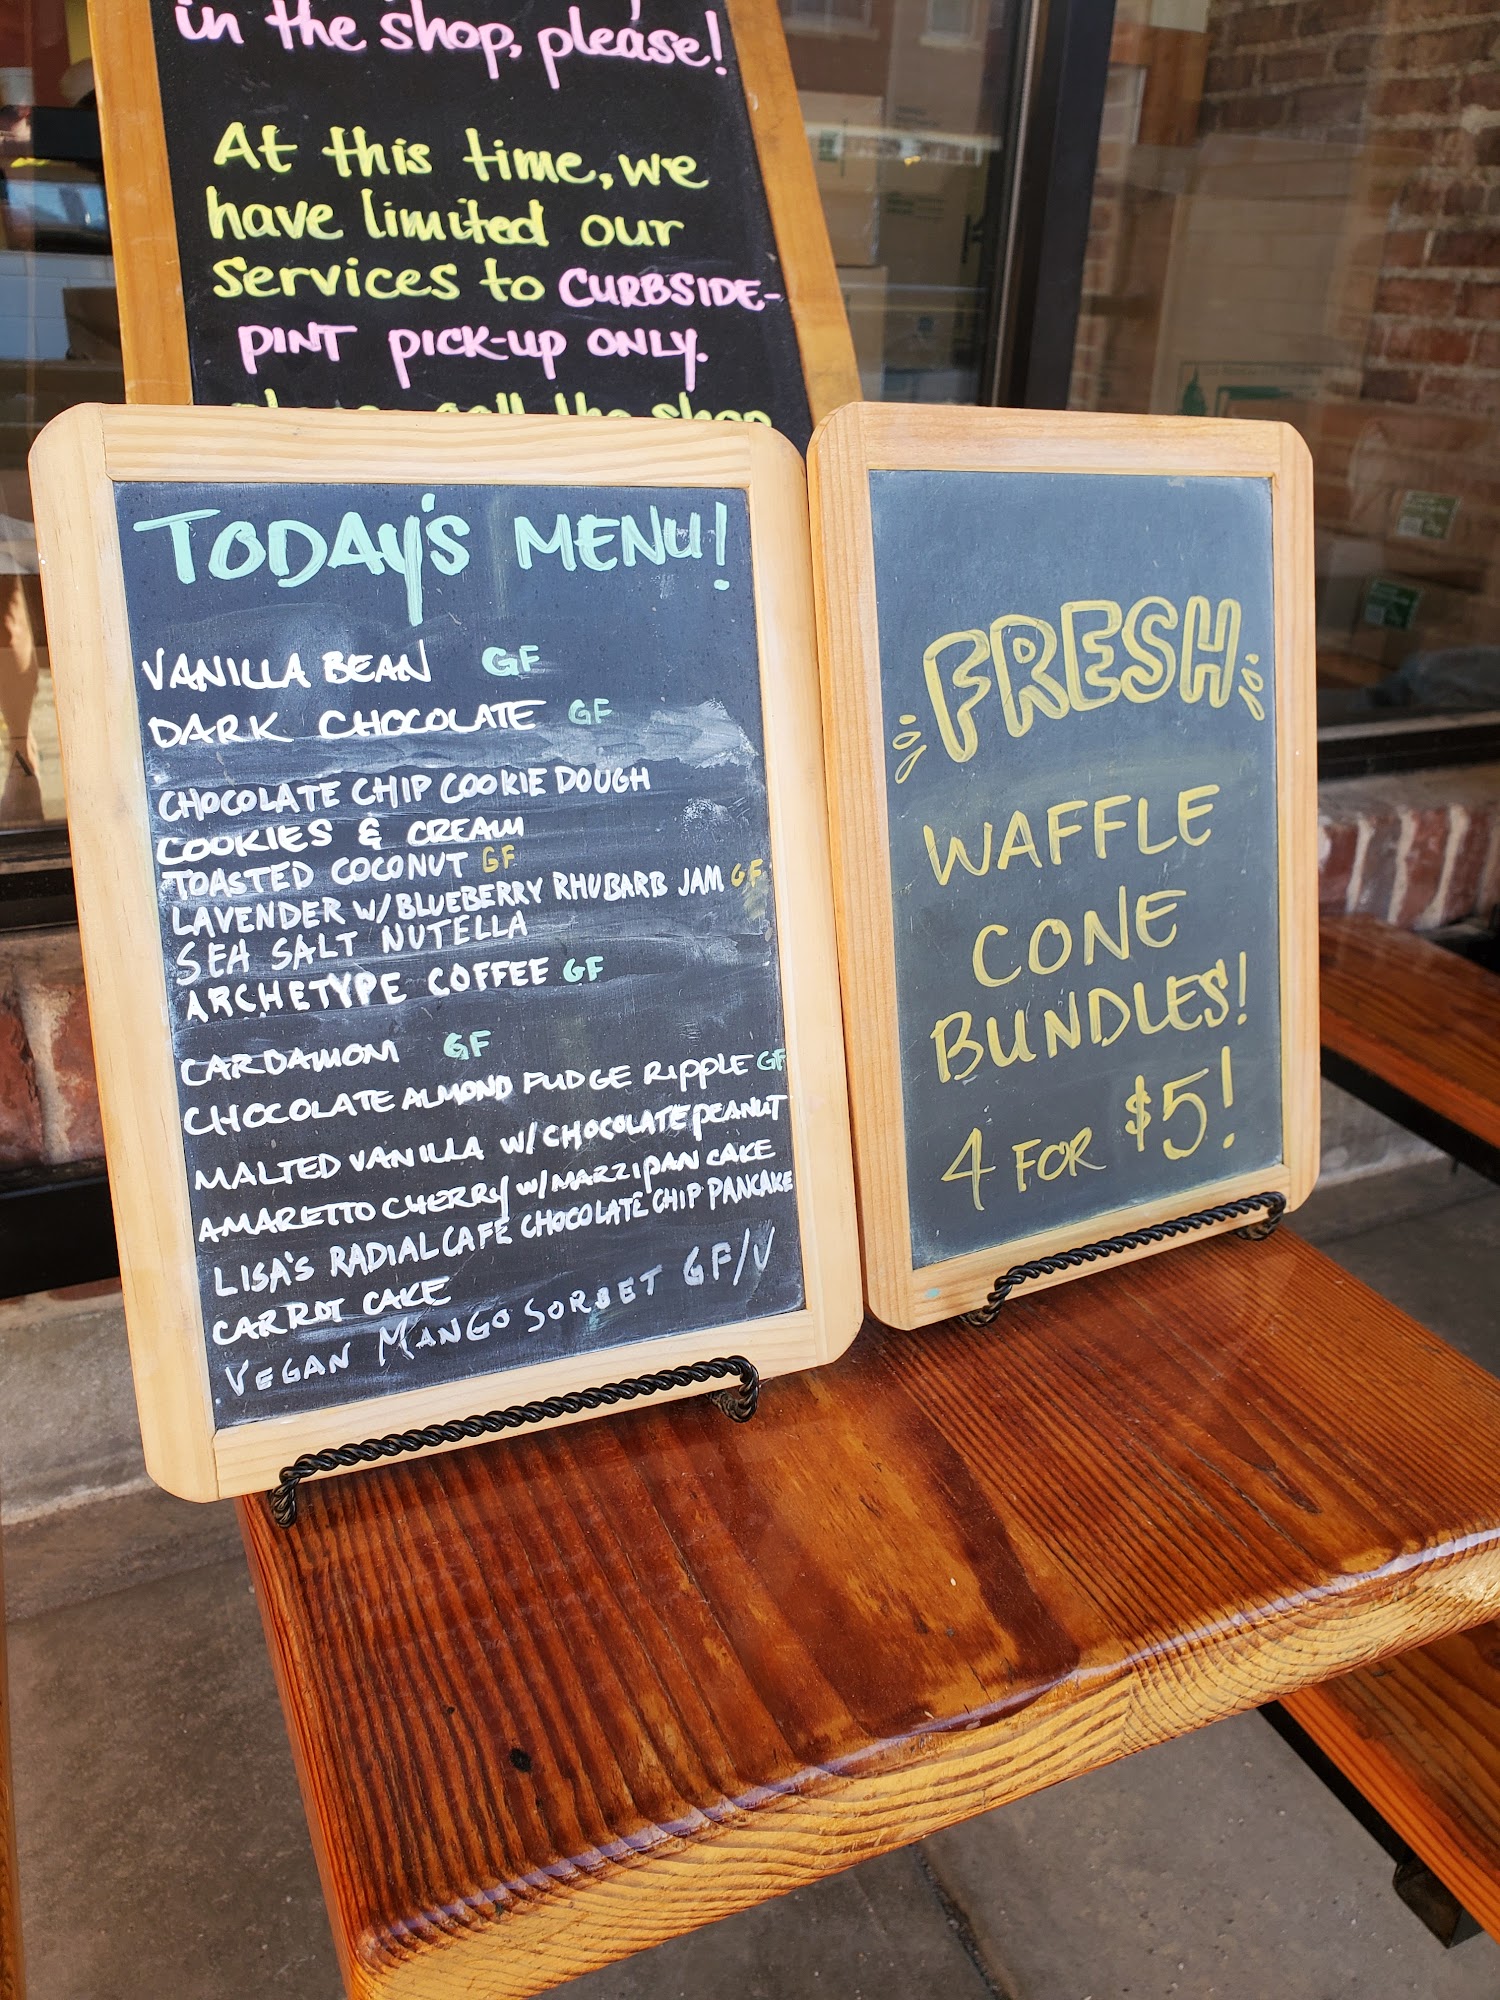 in the shop, please!
At this time, we
have limited our
services to CURBSIDE-
PINT PICK-UP ONLY.
call the shop
TODAY'S MENU!
VANILLA BEAN GF
DARK CHOCOLATE GF
CHOCOLATE CHIP COOKIE DOUGH
COOKIES & CREAM
TOASTED COCONUT GF
LAVENDER W/BLUEBERRY RHUBARB JAM GF
SEA SALT NUTELLA
ARCHETYPE COFFEE GF
CARDAMOM GF
CHOCOLATE ALMOND FUDGE RIPPLE GF
MALTED VANILLA W/CHOCOLATE PEANUT
AMARETTO CHERRY W/MARZIPAN CAKE
LISA'S RADIAL CAFE CHOCOLATE CHIP PANCAKE
CARROT CAKE
VEGAN MANGO SORBET GF/V
FRESH
WAFFLE
CONE
BUNDLES!
4 FOR $5!